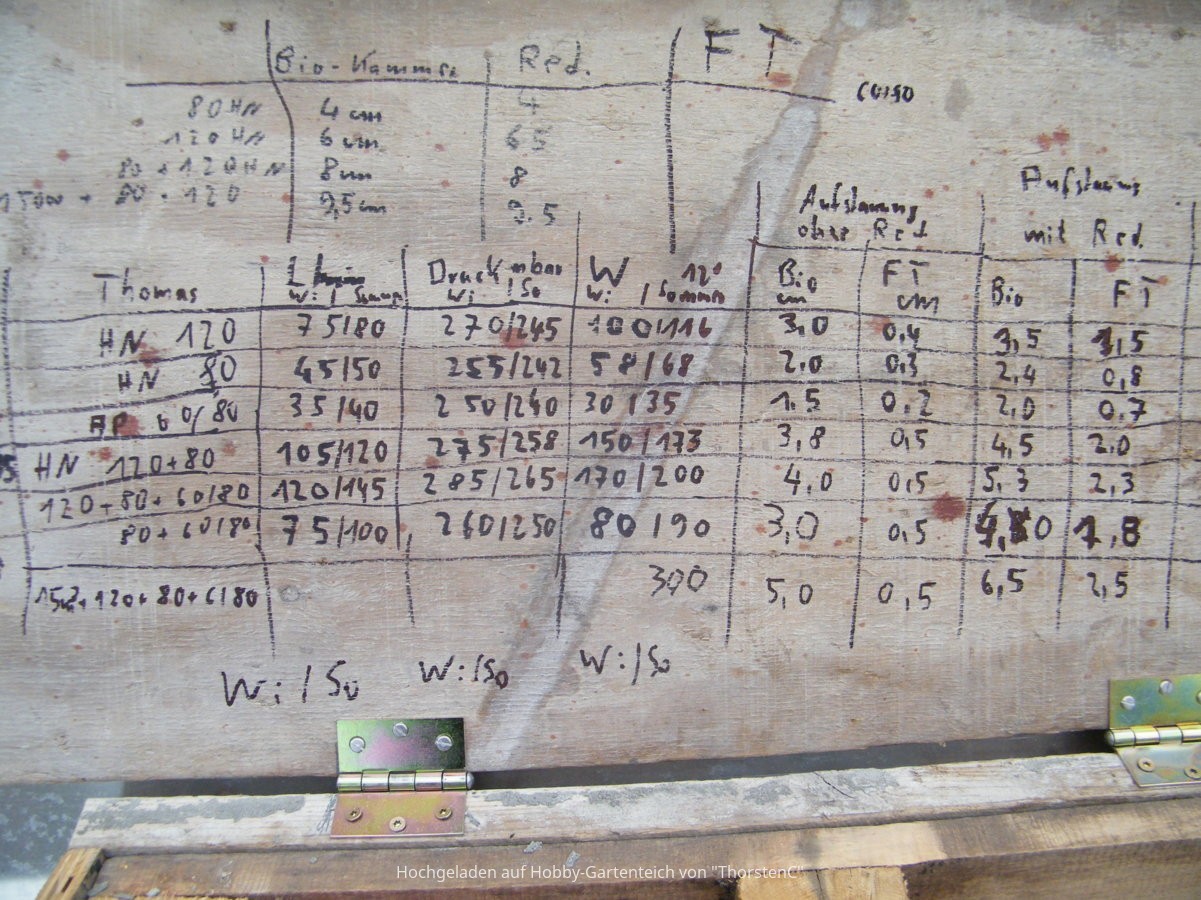 Bio-Kammer Red. FT
80HN 4cm 4
120HN 6cm 6.5
80+120HN 8cm 8
80+120 9,5cm 9.5
Aufstauung ohne Red. Aufstauung mit Red.
Thomas L Druck mbar W 12° Bio cm FT cm Bio FT
Wi / Wi / So Wi / Sommer
HN 120 75/80 270/245 100/116 3,0 0,4 3,5 1,5
HN 80 45/50 255/242 58/68 2.0 0.3 2,4 0,8
AP 60/80 35/40 250/240 30/35 1.5 0.2 2,0 0,7
HN 120+80 105/120 275/258 150/173 3,8 0,5 4,5 2.0
120+80+60/80 120/145 285/265 170/200 4,0 0,5 5,3 2,3
80+60/80 75/100 260/250 80/90 3,0 0,5 1,8
300 5,0 0,5 6,5 2,5
Wi/So Wi/So Wi/So
Hochgeladen auf Hobby-Gartenteich von "ThorstenC"